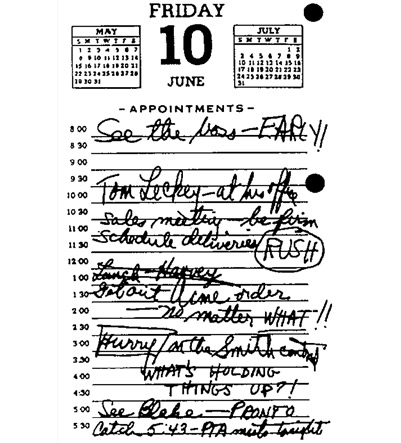 FRIDAY
10
JUNE
MAY
S M T W T F S
1 2 3 4 5 6 7
8 9 10 11 12 13 14
15 16 17 18 19 20 21
22 23 24 25 26 27 28
29 30 31
JULY
S M T W T F S
1 2
3 4 5 6 7 8 9
10 11 12 13 14 15 16
17 18 19 20 21 22 23
24 25 26 27 28 29 30
31
-APPOINTMENTS-
8 00 See the boss-EARLY!
8 30
9 00
9 30
10 00 Tom Leckey-at his office
10 30
11 00 Sales meeting-be firm
11 30 Schedule deliveries RUSH
12 00
12 30 Lunch-Harvey
1 00 Get out Acme order
1 30
2 00 -no matter WHAT!!
2 30
3 00 Hurry on the Smith contract
3 30
4 00 WHAT'S HOLDING
4 30 THINGS UP?!
5 00 See Blake-PRONTO
5 30 Catch 5:43-PTA meets tonight